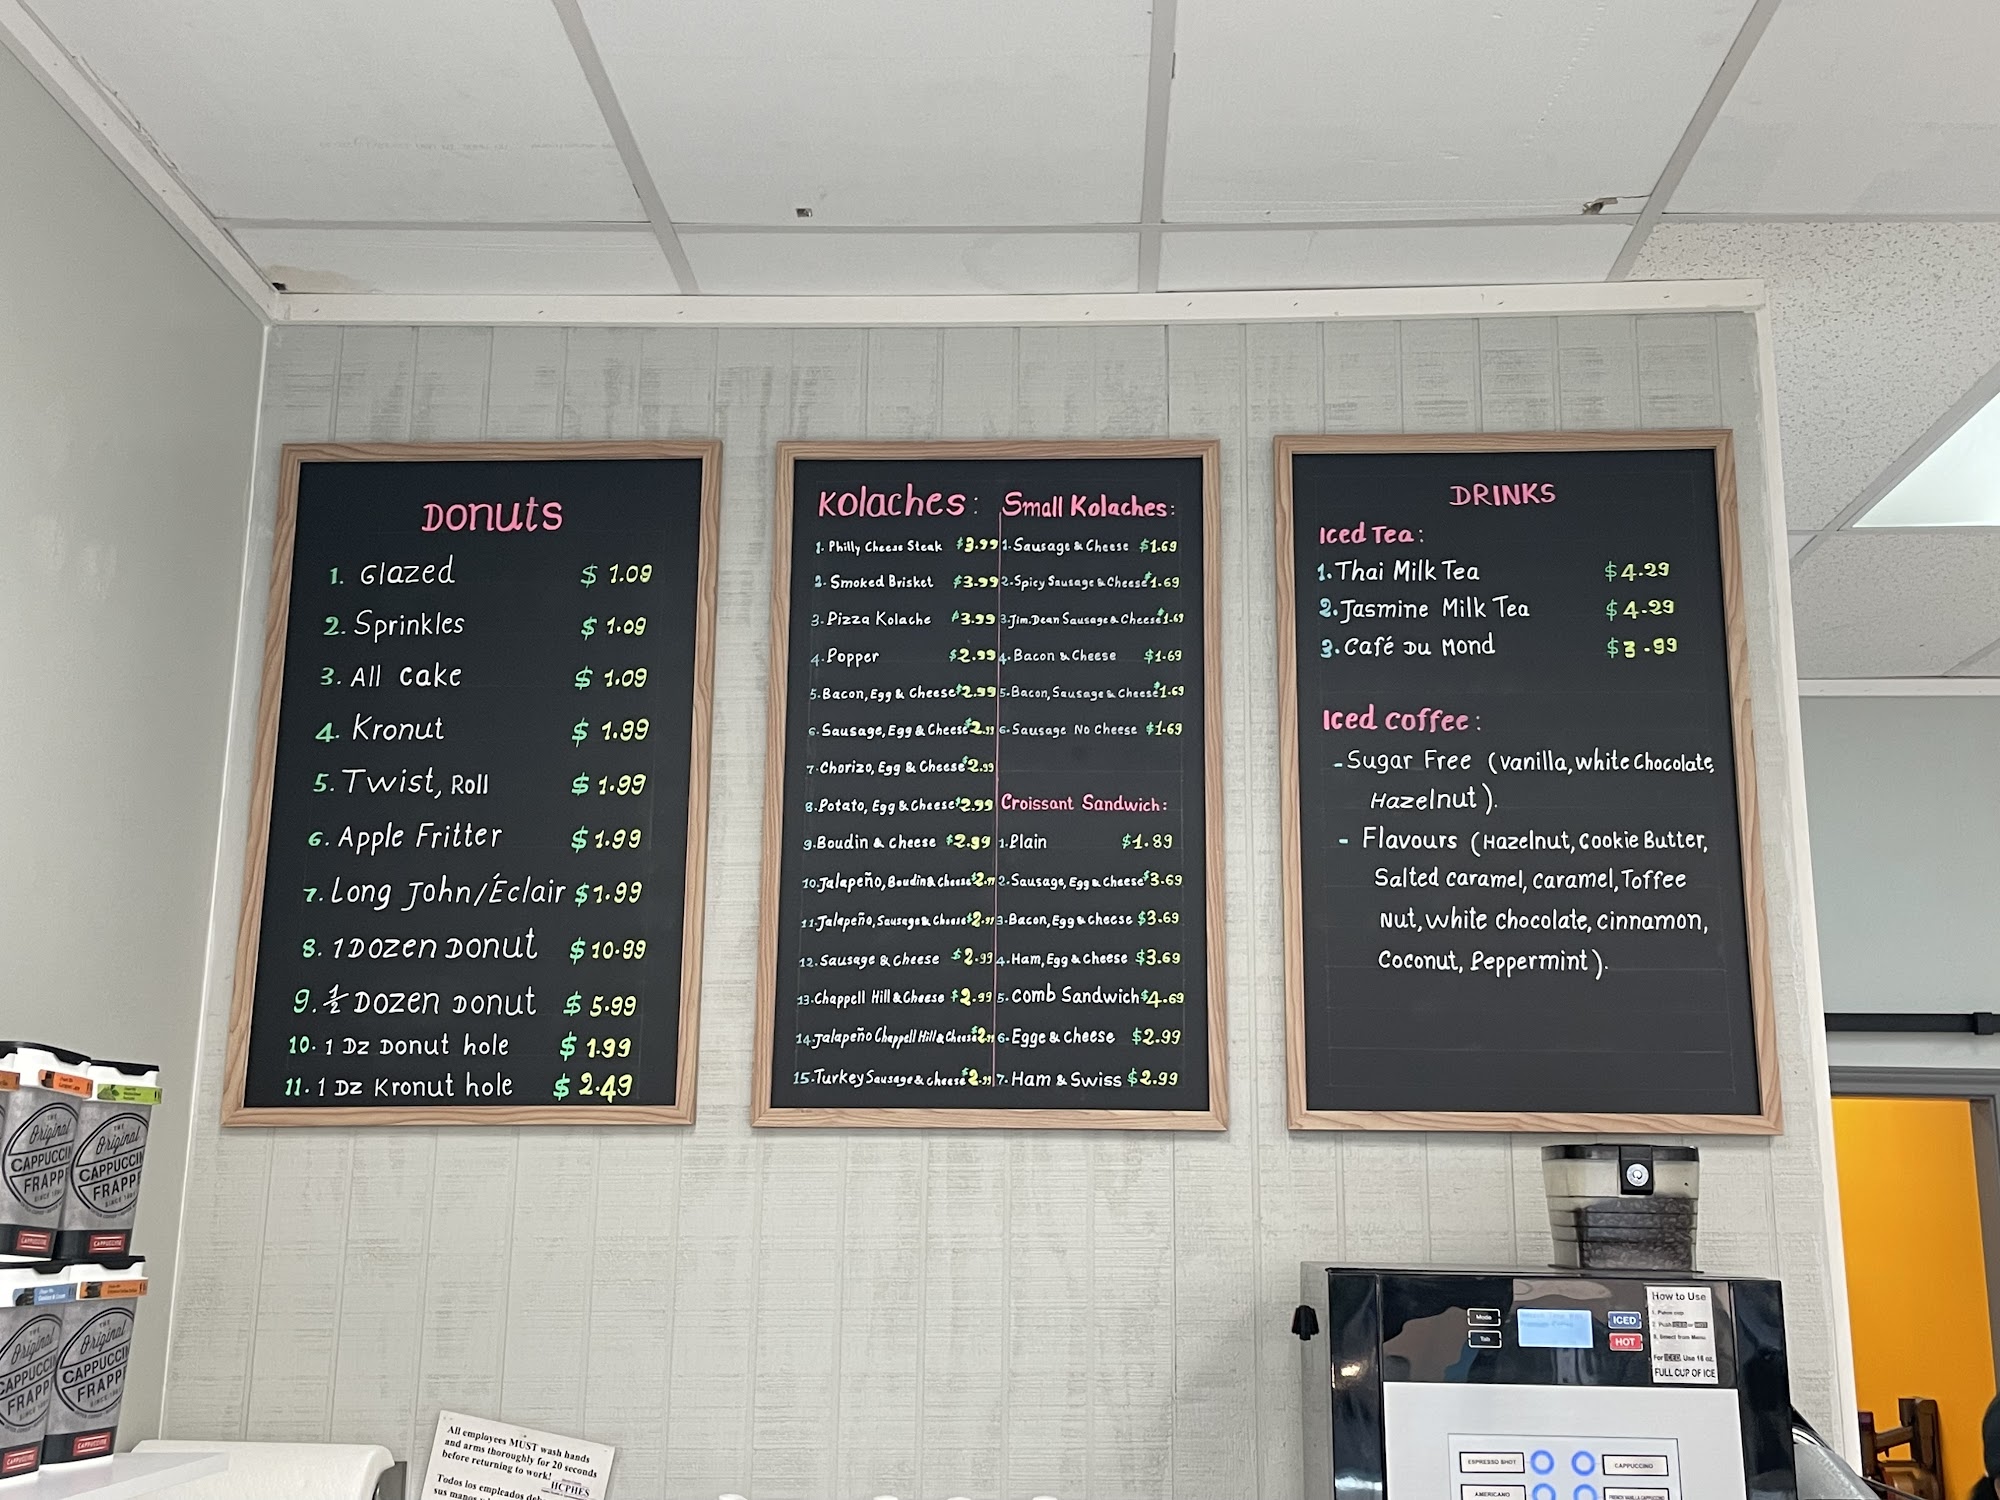 Donuts
1. Glazed $ 1.09
2. Sprinkles $ 1.09
3. All cake $ 1.09
4. Kronut $ 1.99
5. Twist, Roll $ 1.99
6. Apple Fritter $ 1.99
7. Long John/Éclair $ 1.99
8. 1 Dozen Donut $ 10.99
9. ½ Dozen Donut $ 5.99
10. 1 Dz Donut hole $ 1.99
11. 1 Dz Kronut hole $ 2.49
Kolaches:
1. Philly Cheese Steak $3.99
2. Smoked Brisket $3.99
3. Pizza Kolache $3.99
4. Popper $2.99
5. Bacon, Egg & Cheese $2.99
6. Sausage, Egg & Cheese $2.99
7. Chorizo, Egg & Cheese $2.99
8. Potato, Egg & Cheese $2.99
9. Boudin & cheese $2.99
10. Jalapeño, Boudin & Cheese $2.99
11. Jalapeño, Sausage & Cheese $2.99
12. Sausage & Cheese $2.99
13. Chappell Hill & Cheese $2.99
14. Jalapeño Chappell Hill & Cheese $2.99
15. Turkey Sausage & cheese $2.99
Small Kolaches:
1. Sausage & Cheese $1.69
2. Spicy Sausage & Cheese $1.69
3. Jim.Dean Sausage & Cheese $1.69
4. Bacon & Cheese $1.69
5. Bacon, Sausage & Cheese $1.69
6. Sausage No Cheese $1.69
Croissant Sandwich:
1. Plain $1.89
2. Sausage, Egg & Cheese $3.69
3. Bacon, Egg & Cheese $3.69
4. Ham, Egg & Cheese $3.69
5. Comb Sandwich $4.69
6. Egge & cheese $2.99
7. Ham & Swiss $2.99
DRINKS
Iced Tea:
1. Thai Milk Tea $4.29
2. Jasmine Milk Tea $4.29
3. Café Du Mond $3.99
Iced coffee:
- Sugar Free (vanilla, white Chocolate,
Hazelnut).
- Flavours (Hazelnut, Cookie Butter,
Salted caramel, caramel, Toffee
Nut, white chocolate, cinnamon,
Coconut, Peppermint).
THE
Original
CAPPUCCIN
FRAPP
CAPPUCCINE
THE
Original
CAPPUCCIN
FRAPP
CAPPUCCINE
THE
Original
CAPPUCCIN
FRAPP
THE
Original
CAPPUCCIN
FRAPP
CAPPUCCINE
All employees MUST wash hands
and arms thoroughly for 20 seconds
before returning to work!
HCPHES
Todos los empleados deb
sus manos
Mode
Tab
ICED
HOT
How to Use
2. Push ICED or HOT
3. Select from Menu
For ICED, Use 16 oz.
FULL CUP OF ICE
ESPRESSO SHOT
CAPPUCCINO
AMERICANO
FRENCH VANILLA CAPPUCCINO